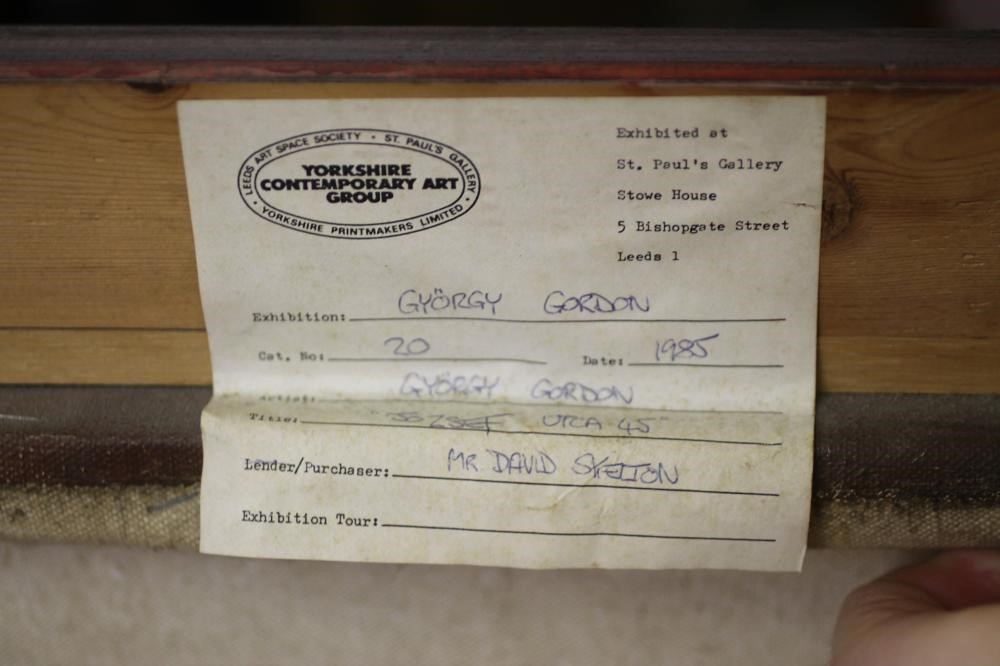 LEEDS ART SPACE SOCIETY · ST. PAUL'S GALLERY ·
YORKSHIRE
CONTEMPORARY ART
GROUP
YORKSHIRE PRINTMAKERS LIMITED ·
Exhibited at
St. Paul's Gallery
Stowe House
5 Bishopgate Street
Leeds 1
Exhibition: GYÖRGY GORDON
Cat. No: 20 Date: 1985
Artist: GYÖRGY GORDON
Title: "JOZSEF UTCA 45"
Lender/Purchaser: MR DAVID SKELTON
Exhibition Tour: